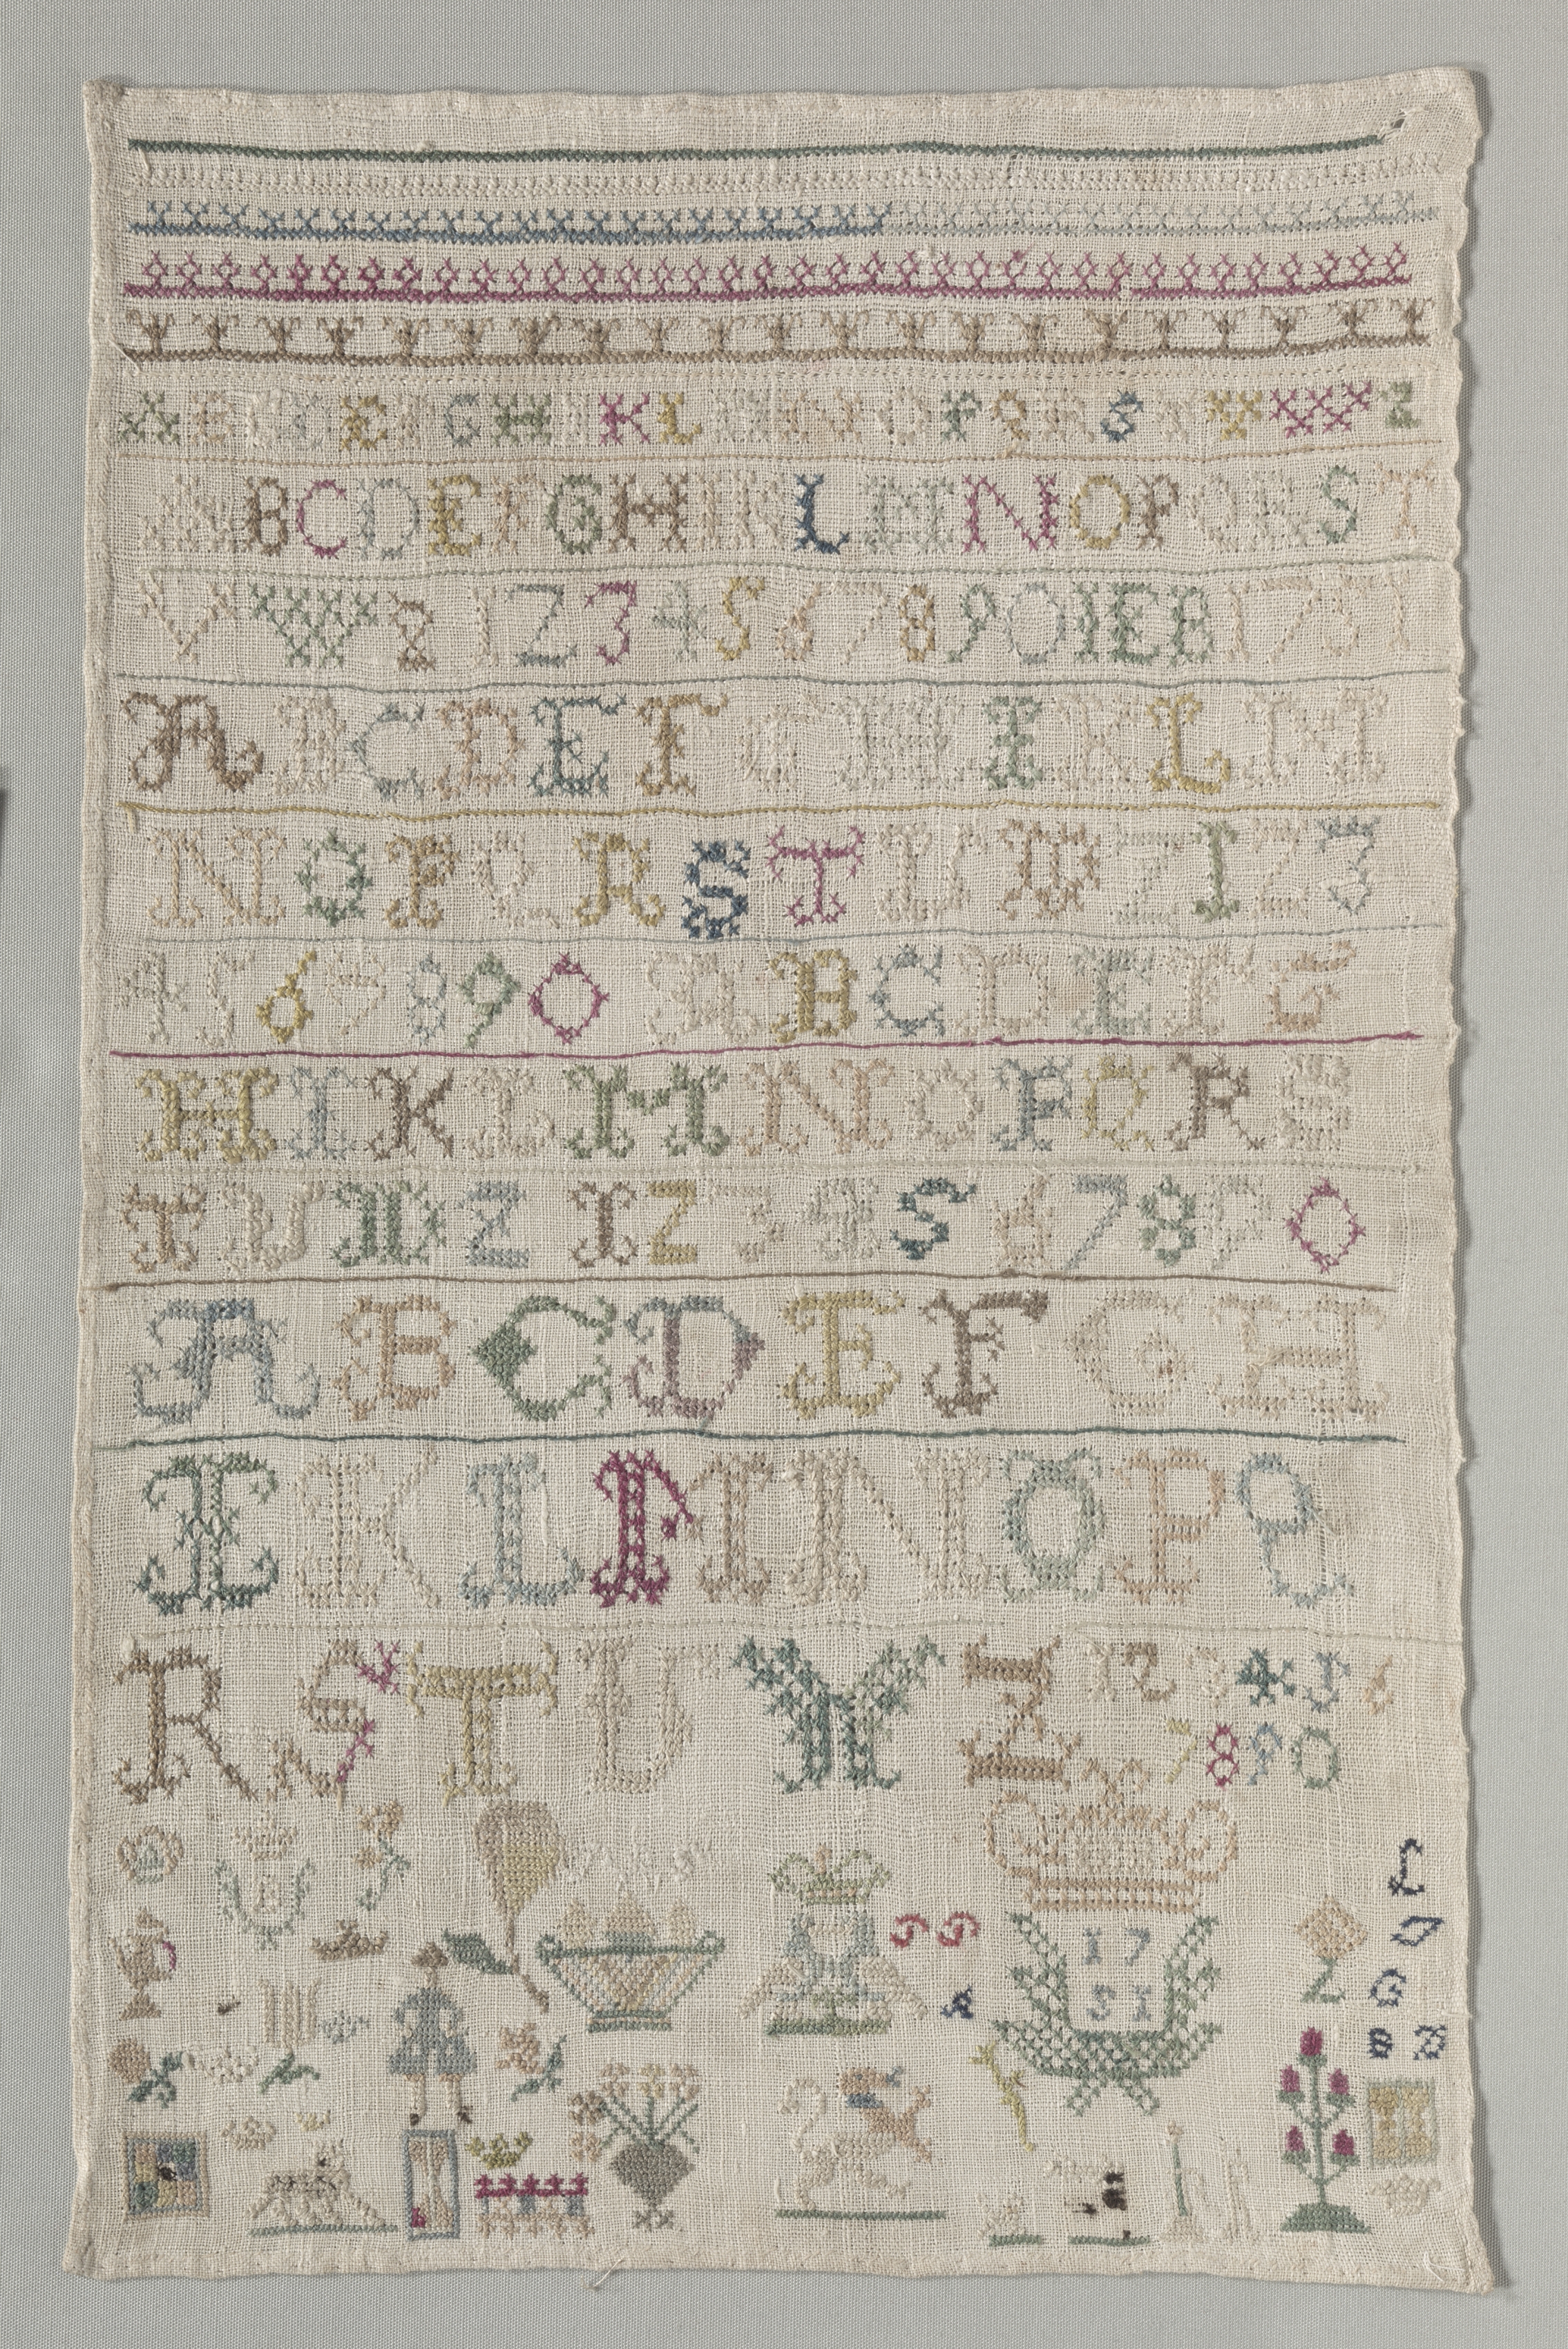 A B C D E F G H I K L M N O P Q R S T V W Z
A B C D E F G H I K L M N O P Q R S T
V W Z 1 2 3 4 5 6 7 8 9 0 I E B 1 7 5 1
A B C D E F G H I K L M
N O P Q R S T U W Z 1 2 3
4 5 6 7 8 9 0 A B C D E F G
H I K L M N O P Q R S
T U W Z 1 2 3 4 5 6 7 8 9 0
A B C D E F G H
I K L M N O P Q
R S T U W Z 1 2 3 4 5 6
7 8 9 0
17
51
L
G
A
B